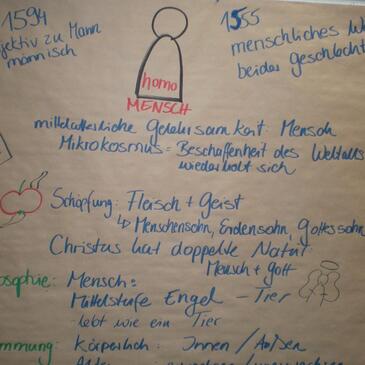 1594
jektiv zu Mann
männisch
1555
menschliches W
beider geschlecht
homo
MENSCH
mittelalterliche Gelehrsamkeit: Mensch
Mikrokosmus = Beschaffenheit des Weltalls
wiederholt sich
Schöpfung: Fleisch + Geist
↳ Menschensohn, Erdensohn, Gottessohn
Christus hat doppelte Natur:
Mensch + Gott
osophie: Mensch =
Mittelstufe Engel - Tier
lebt wie ein Tier
mmung: Körperlich: Innen / Außen